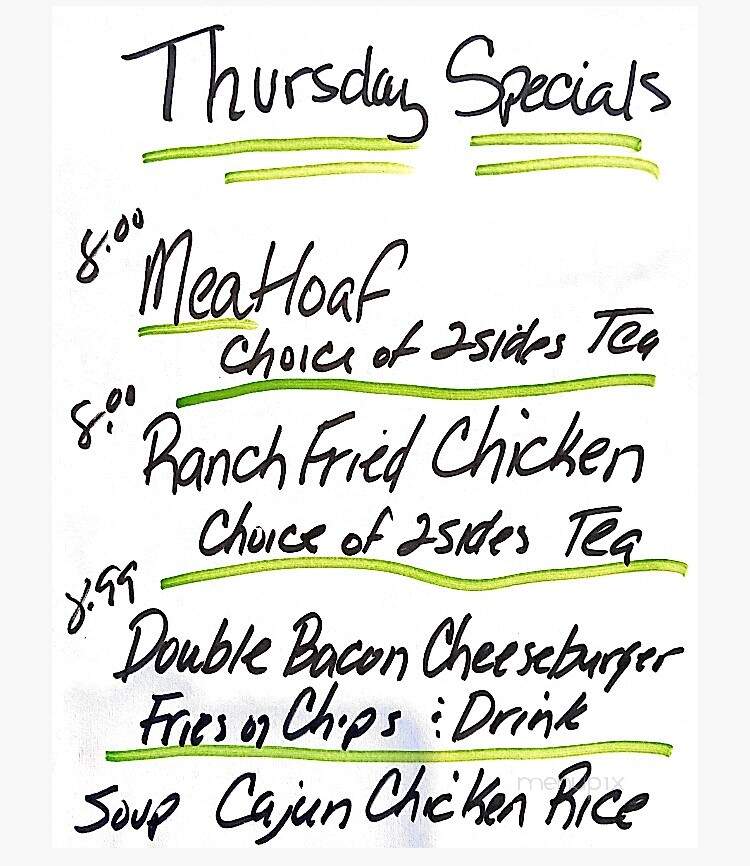 Thursday Specials
8.00
Meatloaf
Choice of 2 sides Tea
8.00
Ranch Fried Chicken
Choice of 2 sides Tea
8.99
Double Bacon Cheeseburger
Fries or Chips & Drink
Soup Cajun Chicken Rice
menupix